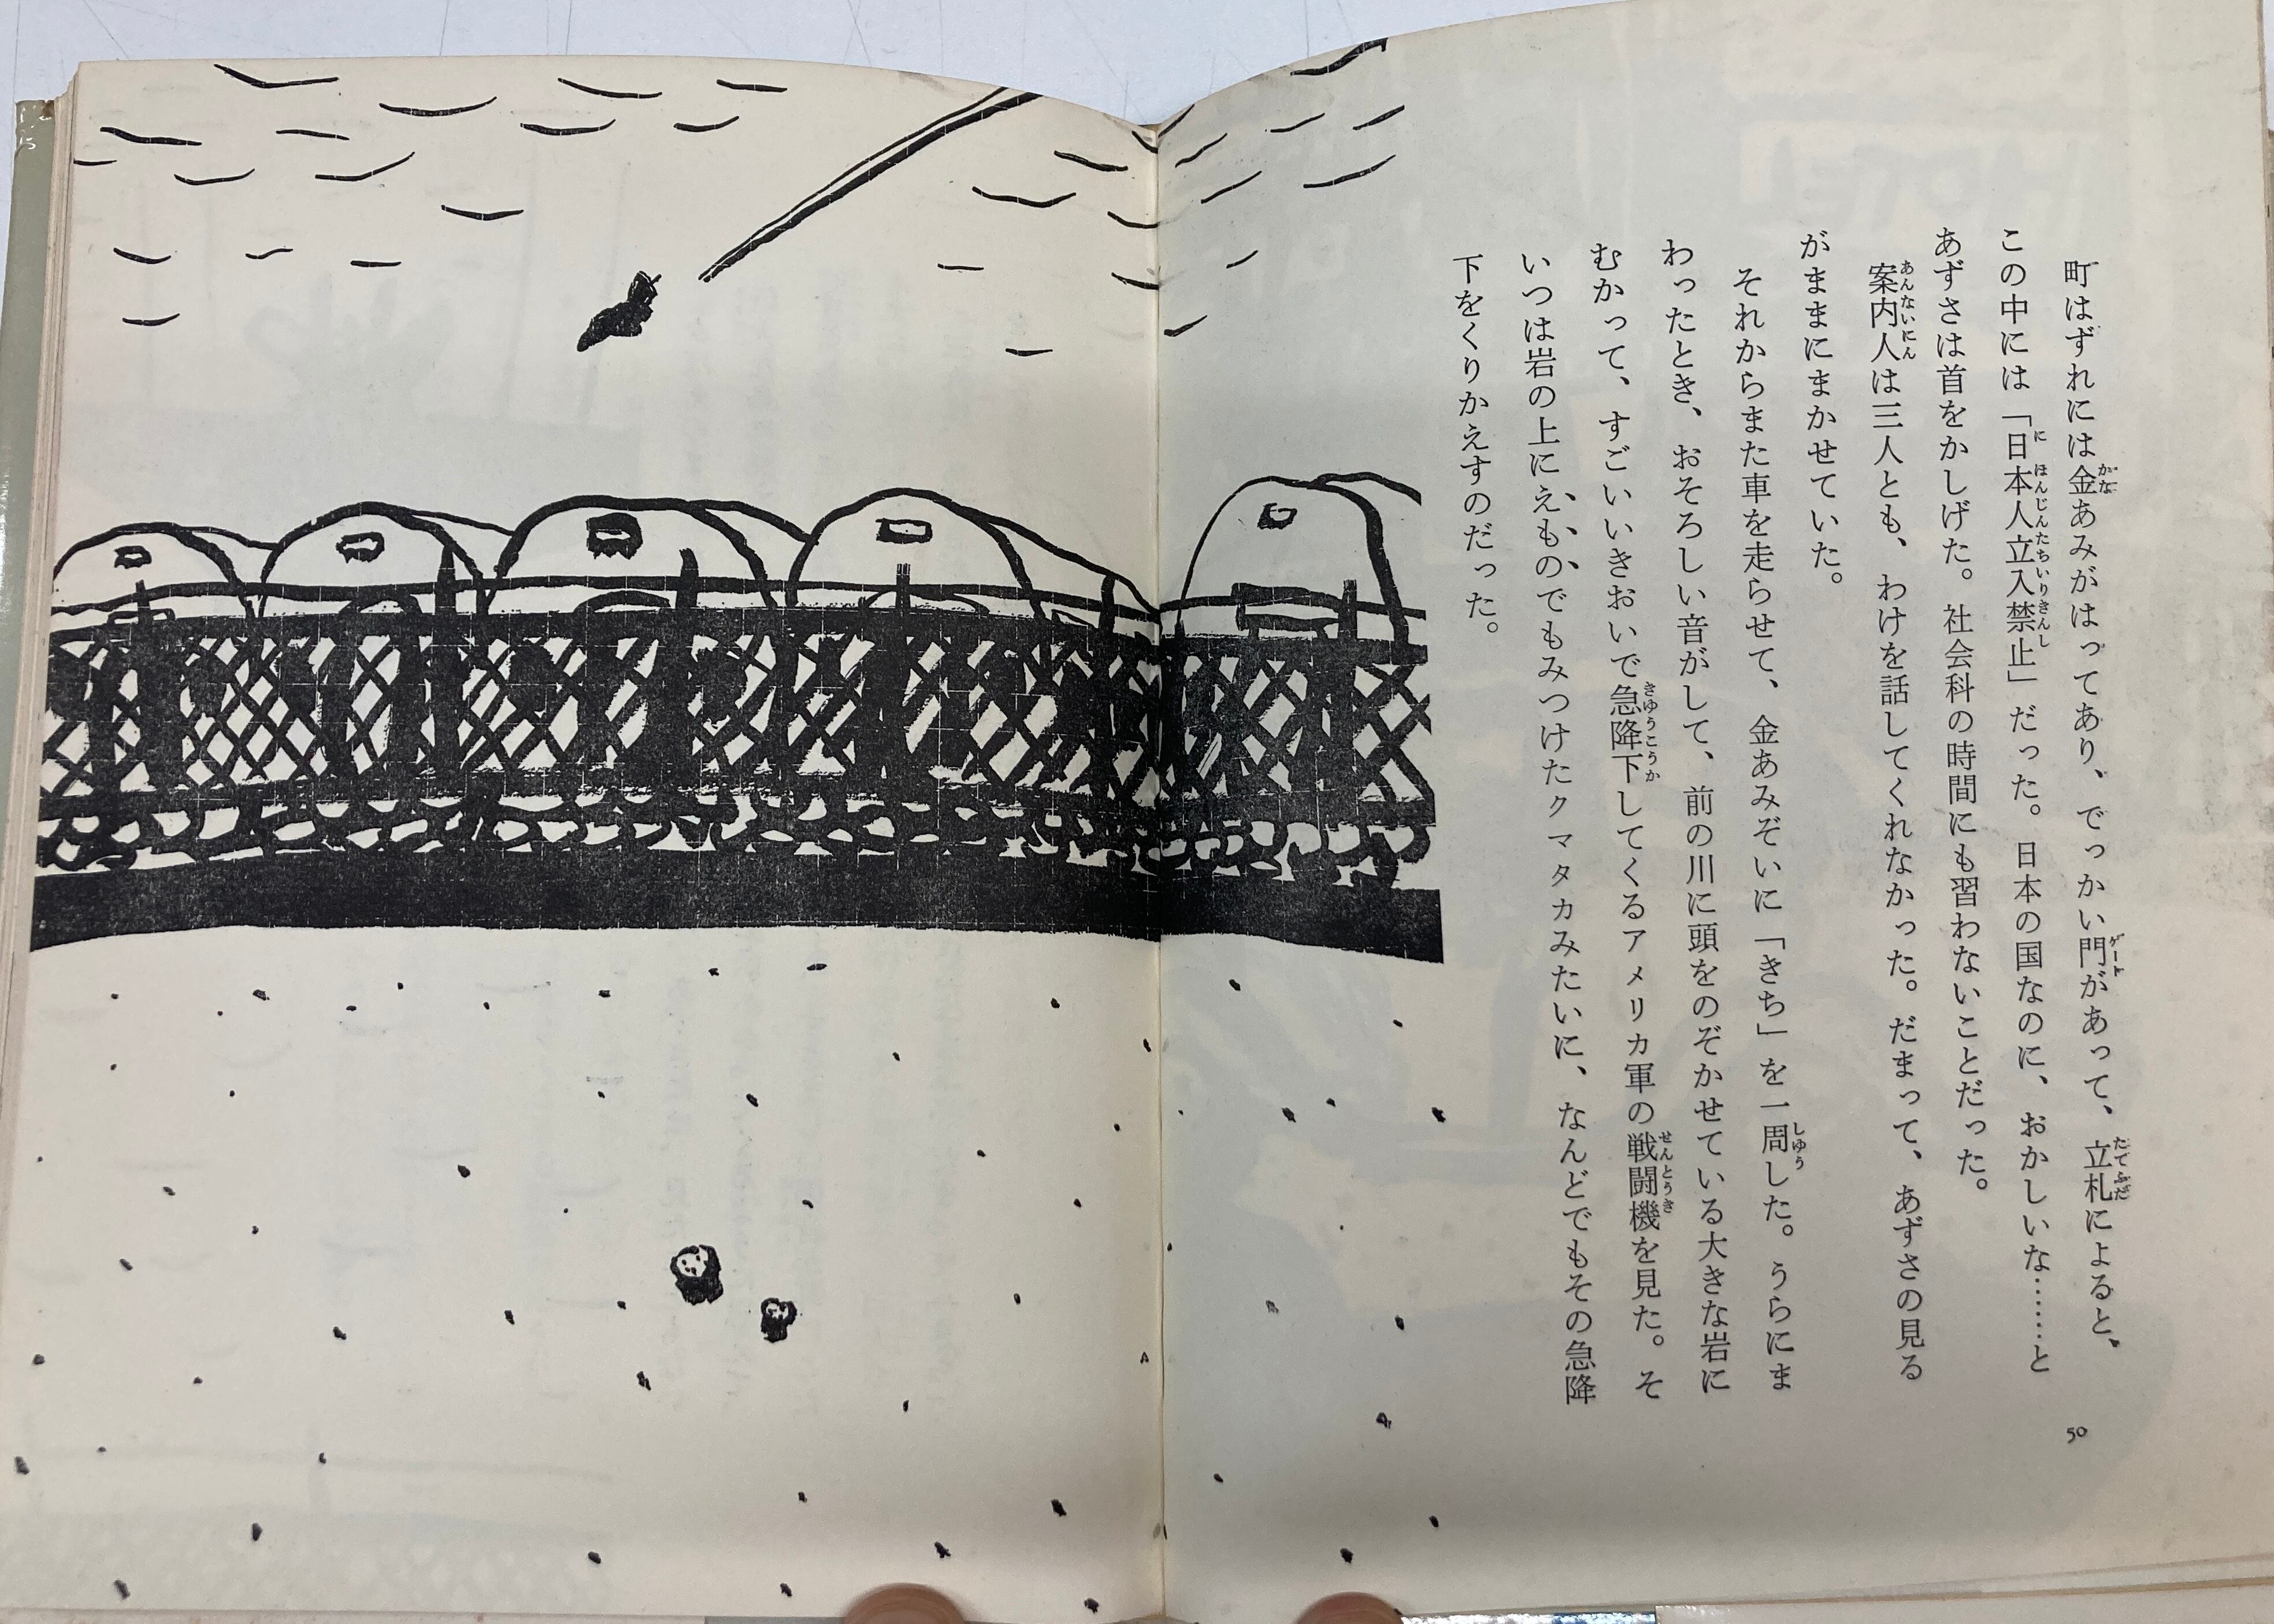 町はずれには金あみがはってあり、でっかい門があって、立札によると、
この中には「日本人立入禁止」だった。日本の国なのに、おかしいな……と
あずさは首をかしげた。社会科の時間にも習わないことだった。
案内人は三人とも、わけを話してくれなかった。だまって、あずさの見る
がままにまかせていた。
それからまた車を走らせて、金あみぞいに「きち」を一周した。うらにま
わったとき、おそろしい音がして、前の川に頭をのぞかせている大きな岩に
むかって、すごいいきおいで急降下してくるアメリカ軍の戦闘機を見た。そ
いつは岩の上にえものでもみつけたクマタカみたいに、なんどでもその急降
下をくりかえすのだった。
50